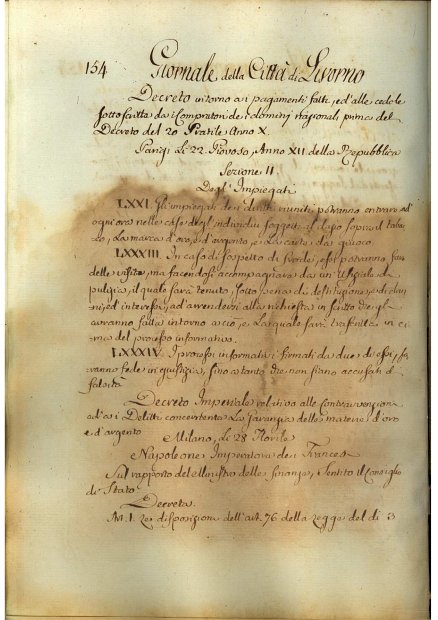 154 Giornale della Città di Livorno
Decreto intorno ai pagamenti fatti, ed alle cedole
sottoscritte da i Compratori dei domini nazionali prima del
Decreto del 20 Pratile Anno X.
Parigi Li 22 Piovoso, Anno XII della Repubblica
Sezione II.
Degl'Impiegati
LXXXI. Gl'impiegati de i dritti riuniti potranno entrare ad
ogni ora nelle case degl'individui soggetti al dazio sopra il tabac
co, La marca d'oro, e d'argento, e La carta da giuoco
LXXXIII. In caso di sospetto di frode, essi potranno fare
delle visite, ma facendosi accompagnare da un Uffiziale di
pulizia, il quale sarà tenuto, sotto pena di destituzione, e di dan
ni, ed interessi, ad arrendersi alla richiesta in scritto che gli
avranno fatta intorno a ciò, e La quale sarà trascritta in ci
ma del processo informativo.
LXXXIV. I processi informativi firmati da due di essi, fa
ranno fede in giustizia, fino a tanto che non siano accusati di
falsità
Decreto Imperiale relativo alle Contravvenzioni
ed a i Delitti concernente La garanzia delle materie d'oro
e d'argento
Milano, Li 28 Florile
Napoleone Imperatore de i Francesi
Sul rapporto del Ministro delle finanze, Sentito il Consiglio
di Stato
Decreta.
Le disposizioni dell'art. 76 della legge del dì 3